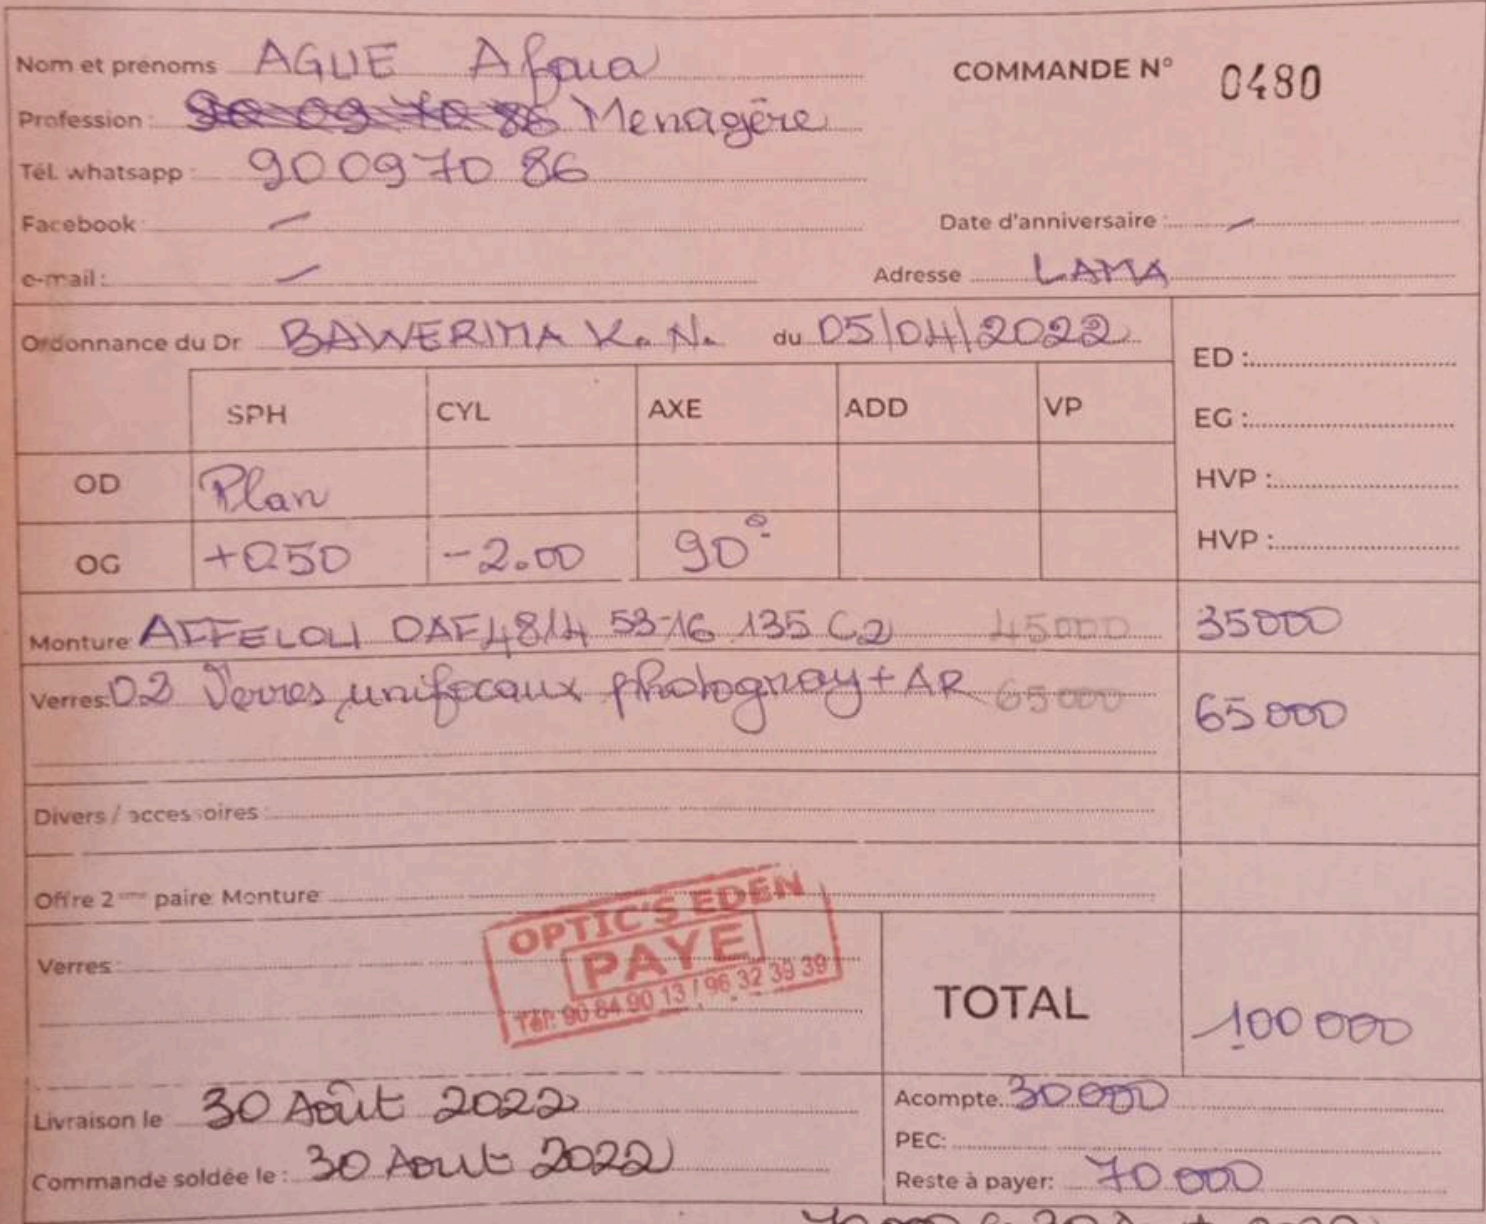 Nom et prénoms AGUE Afoua
COMMANDE N° 0480
Profession : Menagère
Tél. whatsapp : 90097086
Facebook : –
Date d'anniversaire : –
e-mail : –
Adresse LAMA
Ordonnance du Dr BAWERIMA K. N. du 05/04/2022
ED :
SPH CYL AXE ADD VP
EG :
OD Plan
HVP :
OG +0.50 -2.00 90°
HVP :
Monture AFFELOU OAF4814 53-16 135 C2 45000 35000
Verres: 02 Verres unifocaux photogray + AR 65000 65000
Divers / accessoires :
Offre 2ème paire Monture
Verres :
OPTIC'S EDEN
PAYE
Tél: 90 84 90 13 / 96 32 39 39
TOTAL 100 000
Livraison le 30 Août 2022
Acompte 30 000
PEC:
Commande soldée le : 30 Aout 2022
Reste à payer: 70 000